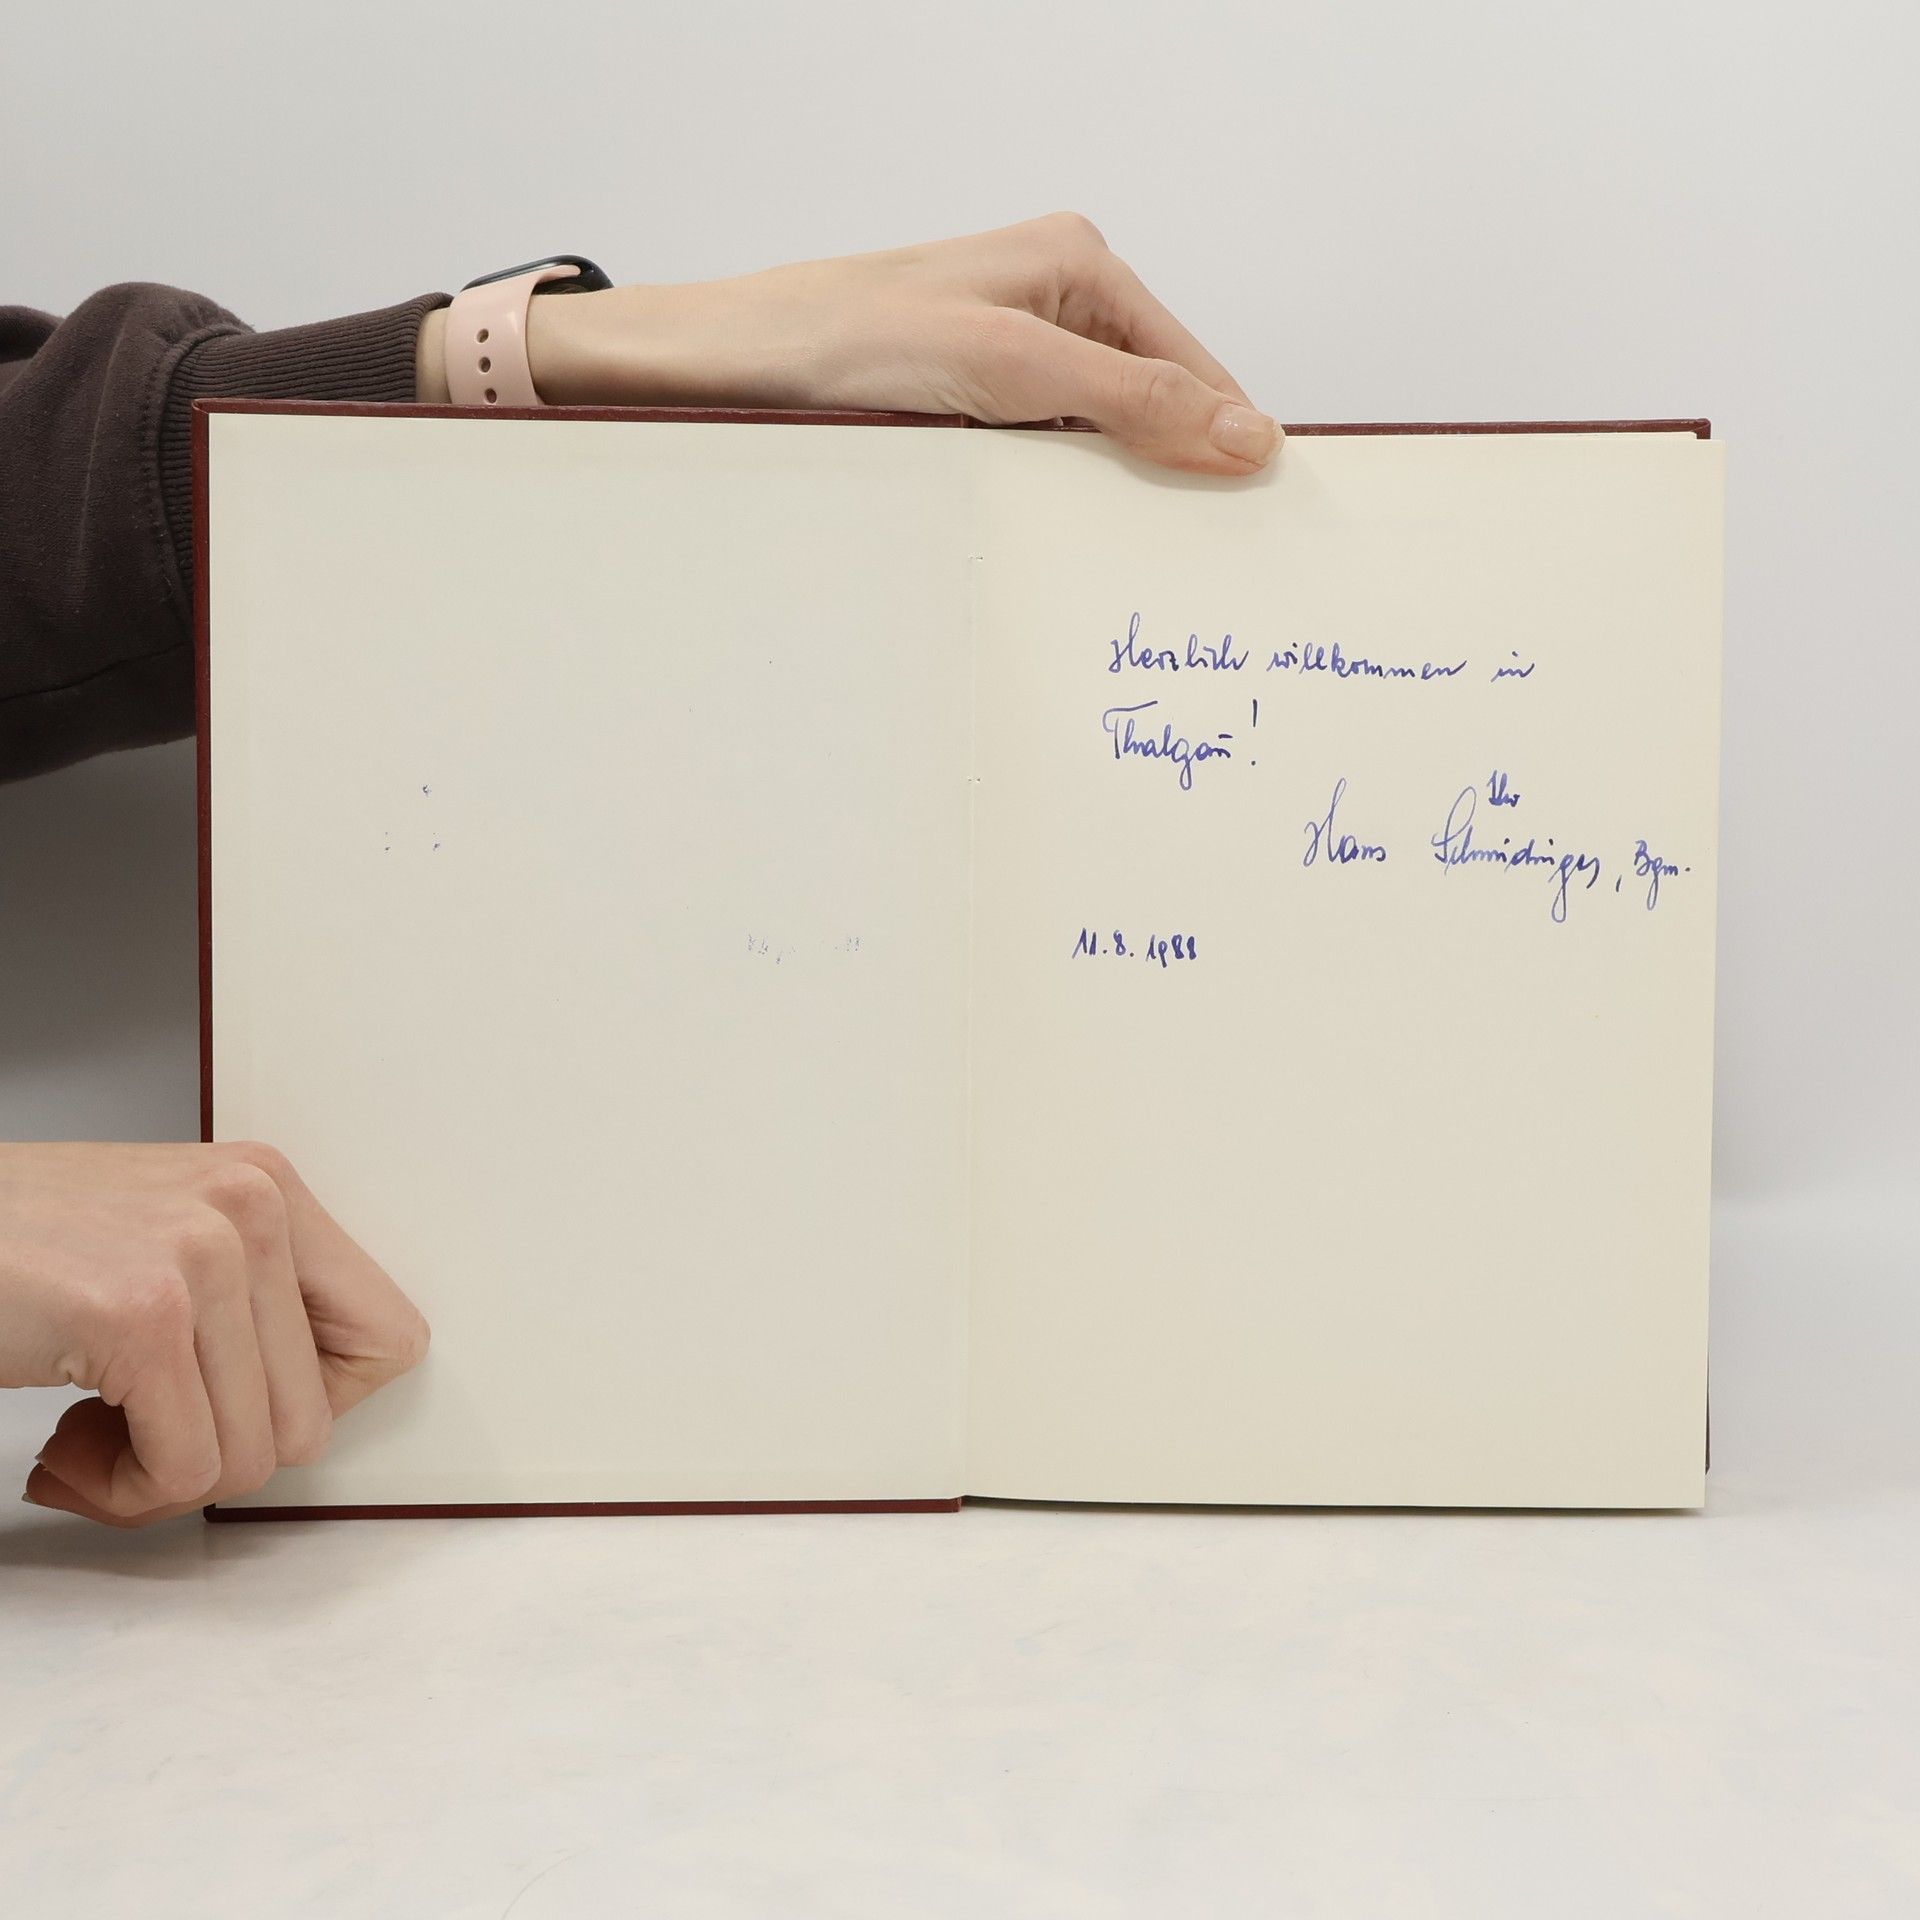 Herzlich willkommen in
Thalgau!
Ihr
Hans Schmidinger, Bgm.
11.8. 1988